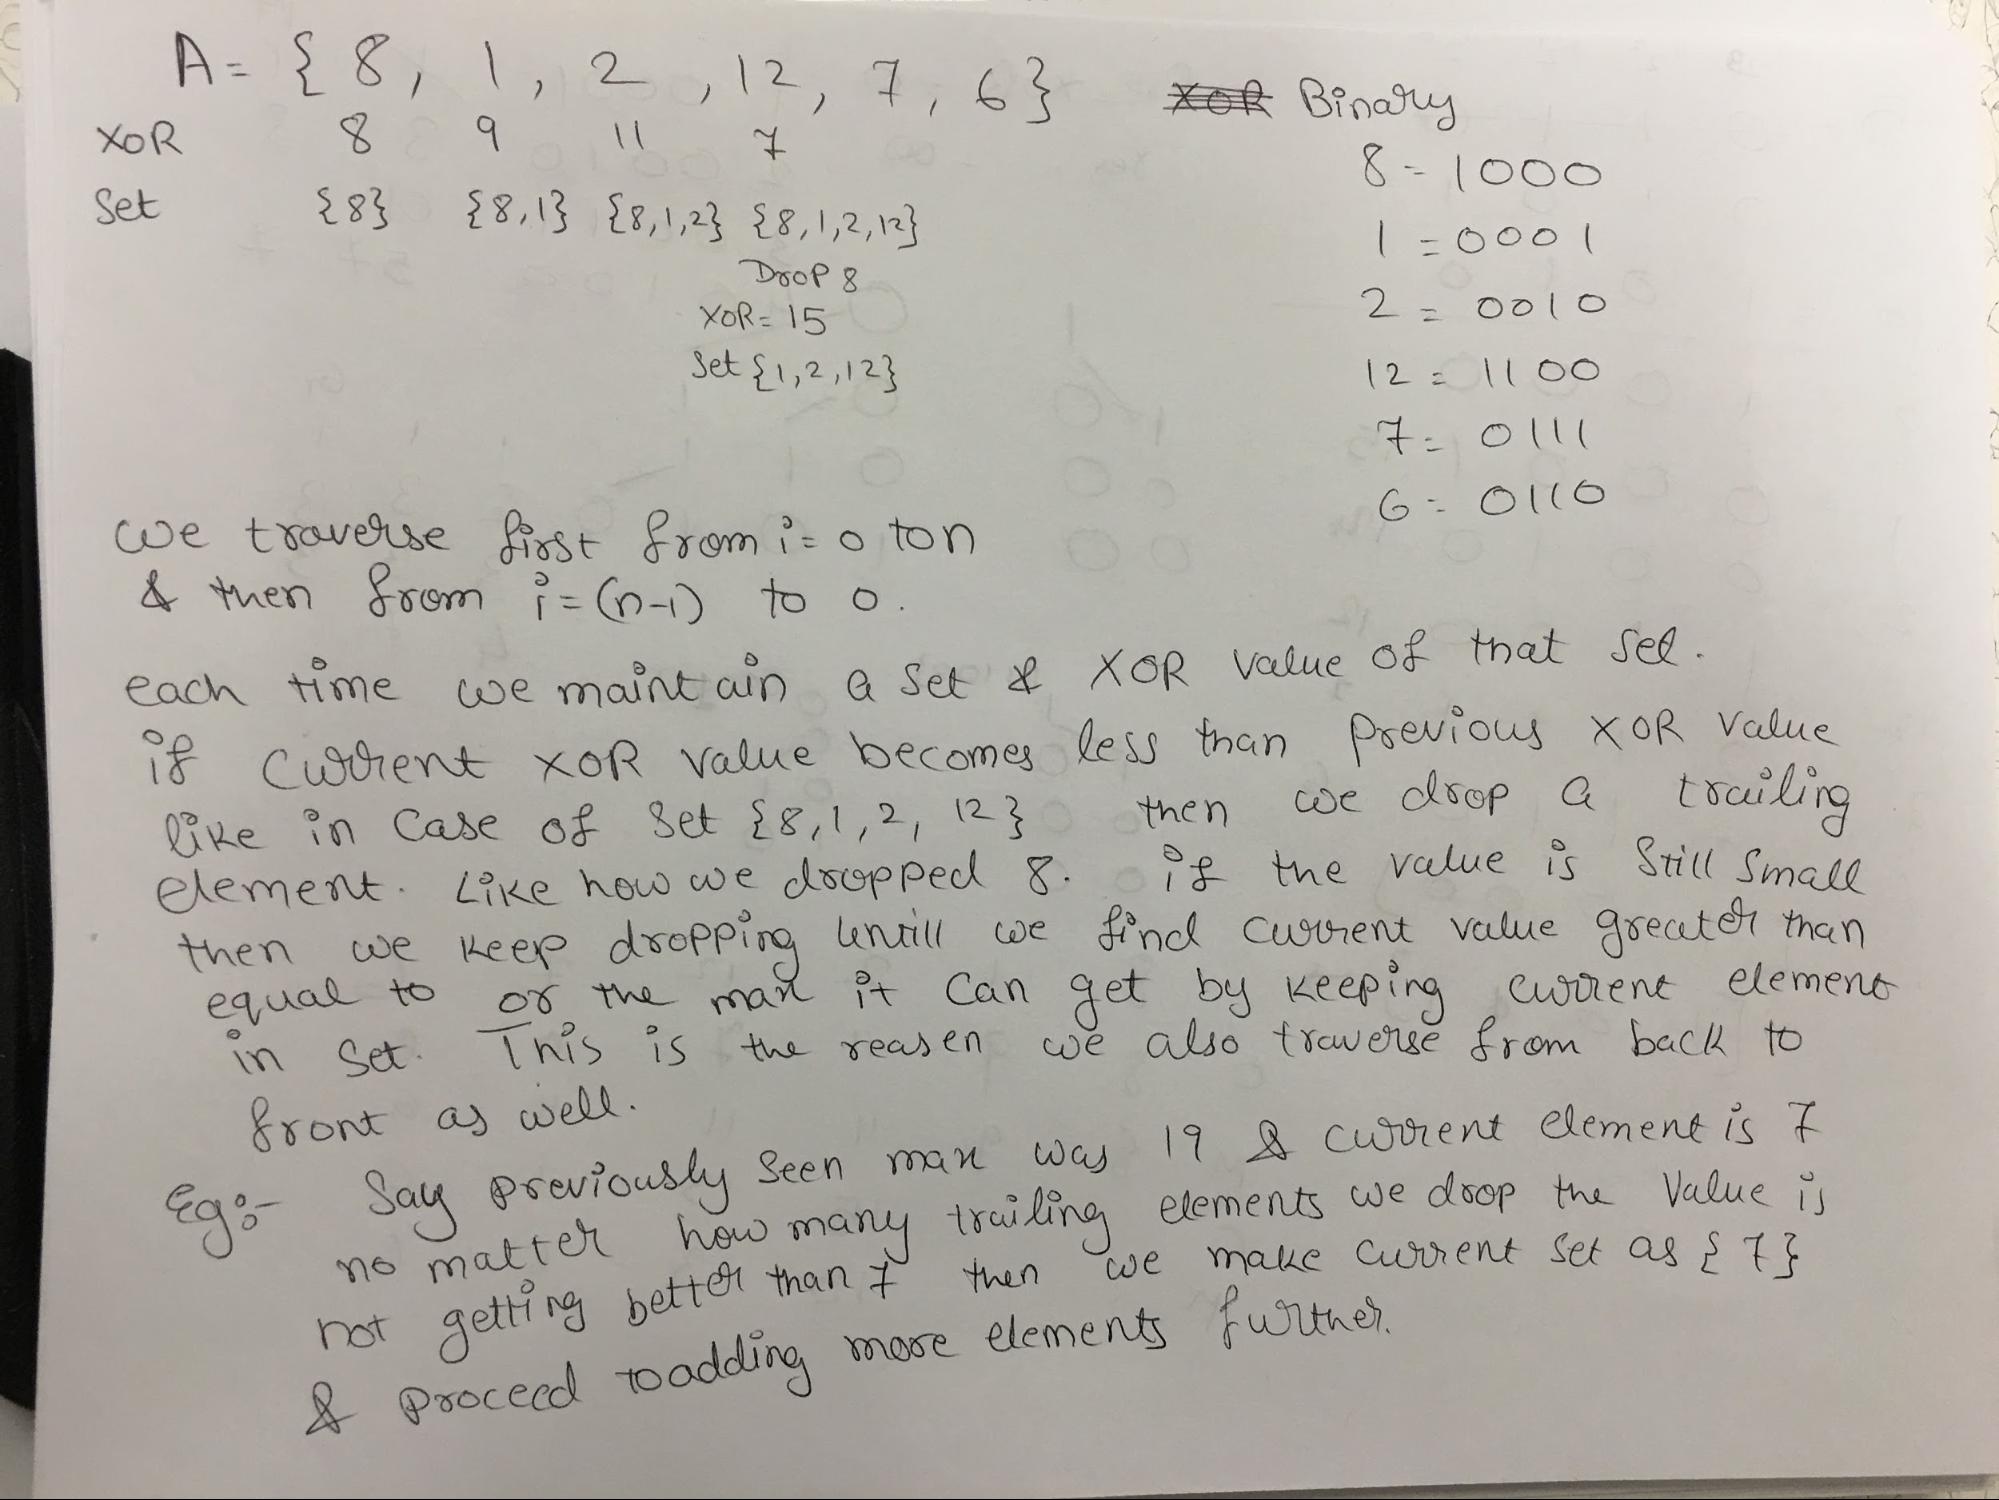 A = { 8, 1, 2, 12, 7, 6 }
XOR 8 9 11 7
Set {8} {8,1} {8,1,2} {8,1,2,12}
Drop 8
XOR = 15
Set {1,2,12}
XOR Binary
8 = 1000
1 = 0001
2 = 0010
12 = 1100
7 = 0111
6 = 0110
we traverse first from i = 0 to n
& then from i = (n-1) to 0.
each time we maintain a set & XOR value of that set.
if current XOR value becomes less than previous XOR value
like in case of set {8,1,2,12} then we drop a trailing
element. Like how we dropped 8. if the value is still small
then we keep dropping untill we find current value greater than
equal to or the max it can get by keeping current element
in set. This is the reasen we also traverse from back to
front as well.
Eg:- Say previously seen max was 19 & current element is 7
no matter how many trailing elements we drop the value is
not getting better than 7 then we make current set as {7}
& proceed to adding more elements further.